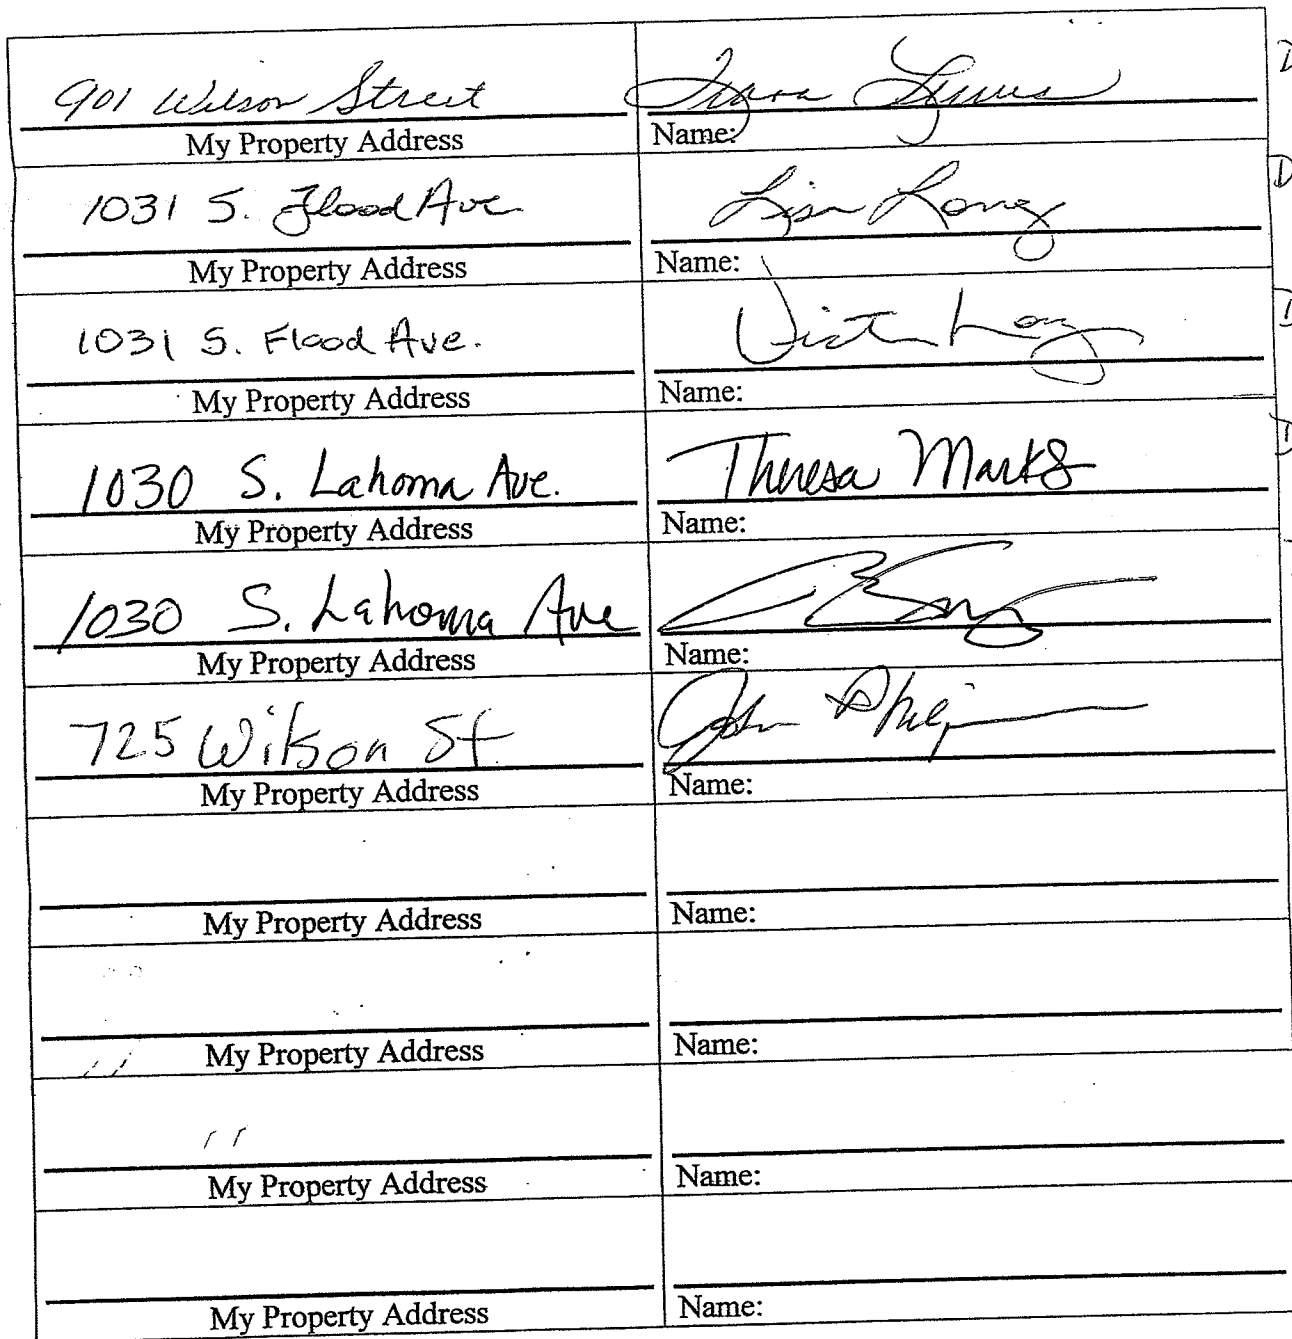 901 Wilson Street
My Property Address Name:
1031 S. Flood Ave Lisa Long
My Property Address Name:
1031 S. Flood Ave. Long
My Property Address Name:
1030 S. Lahoma Ave. Theresa Marks
My Property Address Name:
1030 S. Lahoma Ave
My Property Address Name:
725 Wilson St John
My Property Address Name:
My Property Address Name:
My Property Address Name:
My Property Address Name:
My Property Address Name: